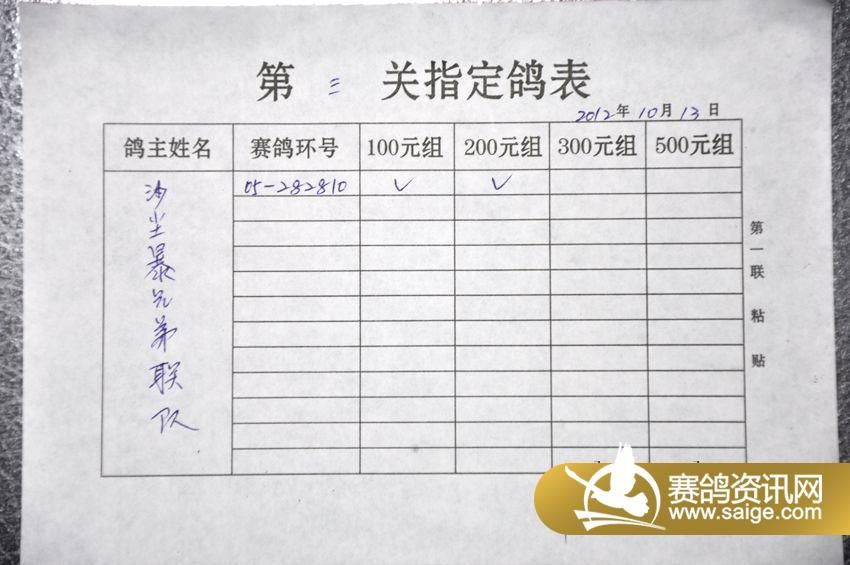 第 三 关指定鸽表
2012年10月13日
鸽主姓名 赛鸽环号 100元组 200元组 300元组 500元组
沙尘暴兄弟联队 05-282810 ✓ ✓
第一联 粘贴
赛鸽资讯网
www.saige.com